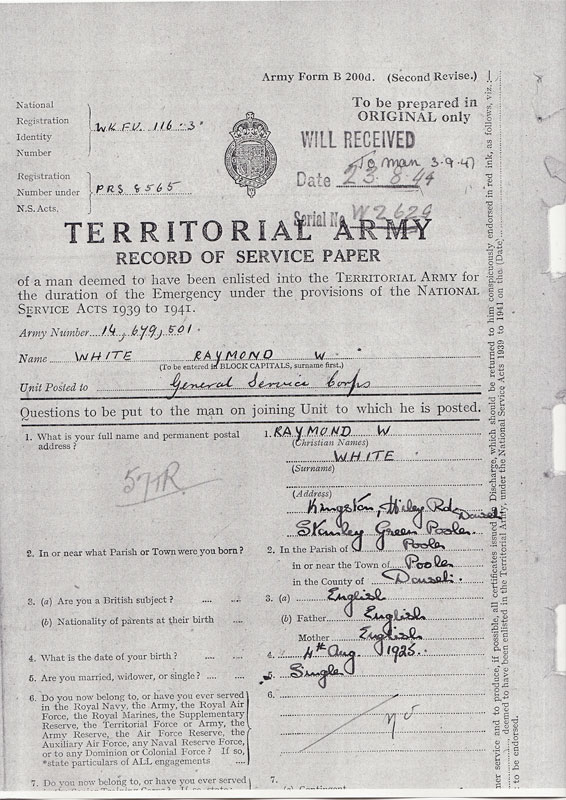 Army Form B 200d. (Second Revise.)
National
Registration
Identity
Number
WKFV. 116·3·
To be prepared in
ORIGINAL only
WILL RECEIVED
To man 3-9-47
Date 23.8.44
Registration
Number under
N.S. Acts.
PRS 8565
Serial No W2629
TERRITORIAL ARMY
RECORD OF SERVICE PAPER
of a man deemed to have been enlisted into the TERRITORIAL ARMY for
the duration of the Emergency under the provisions of the NATIONAL
SERVICE ACTS 1939 to 1941.
Army Number 14,679,501.
Name WHITE RAYMOND W.
(To be entered in BLOCK CAPITALS, surname first.)
Unit Posted to General Service Corps
Questions to be put to the man on joining Unit to which he is posted.
1. What is your full name and permanent postal
address?
1. RAYMOND W
(Christian Names)
WHITE
(Surname)
(Address)
Kingston, Hiley Rd Dorset
Stanley Green Poole.
2. In or near what Parish or Town were you born?
2. In the Parish of Poole
in or near the Town of Poole
in the County of Dorset.
3. (a) Are you a British subject? .... ....
3. (a) English
(b) Nationality of parents at their birth ....
(b) Father English
Mother English
4. What is the date of your birth? .... ....
4. 4th Aug. 1925.
5. Are you married, widower, or single? .... ....
5. Single
6. Do you now belong to, or have you ever served
in the Royal Navy, the Army, the Royal Air
Force, the Royal Marines, the Supplementary
Reserve, the Territorial Force or Army, the
Army Reserve, the Air Force Reserve, the
Auxiliary Air Force, any Naval Reserve Force,
or to any Dominion or Colonial Force? If so,
*state particulars of ALL engagements ....
6. no
7. Do you now belong to, or have you ever served
7.